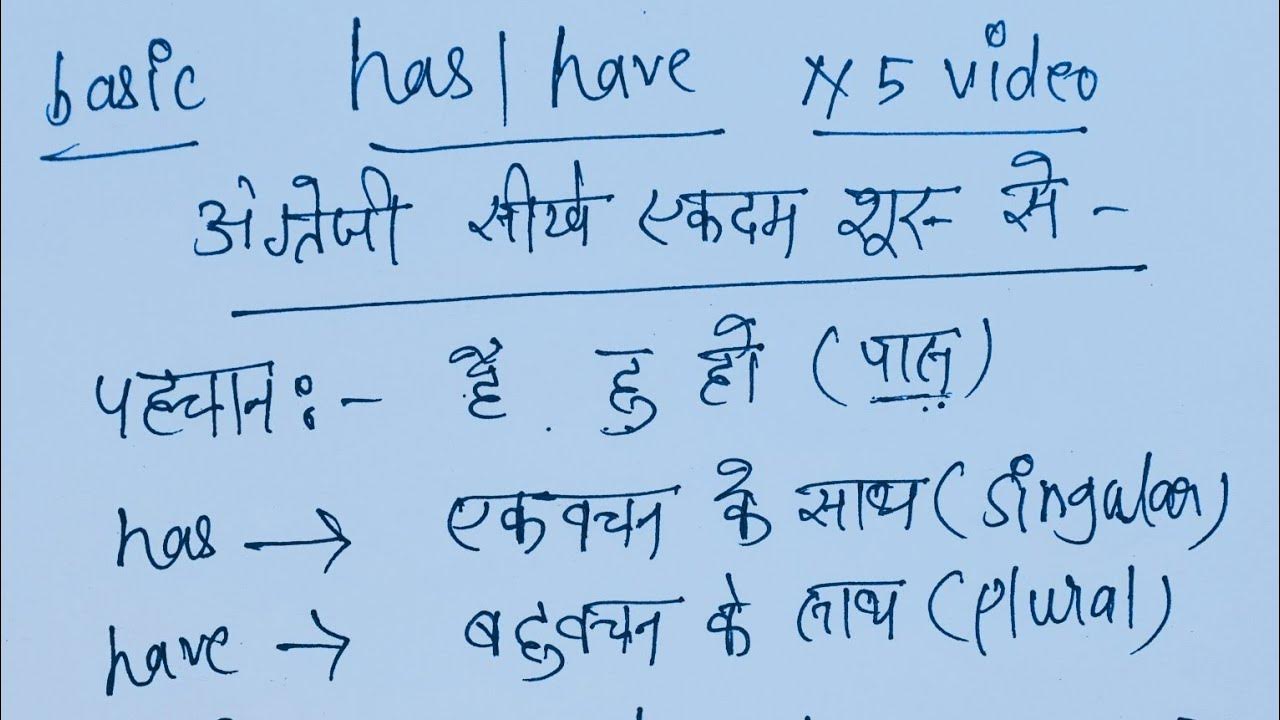 basic has | have 5 video
अंग्रेजी सीखे एकदम शूरू से -
पहचान :- है हु हो (पास)
has → एकवचन के साथ (Singular)
have → बहुवचन के साथ (plural)